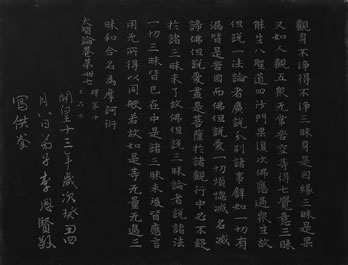 觀身不淨得不淨三昧身是因緣三昧是果
又如人觀五衆无常苦空等得七覺意三昧
能生八聖道四沙門果復次佛應適衆生故
但說一法論者廣說分別諸事譬如一切有
漏皆是苦因而佛但說愛一切煩惱滅名滅
諦佛但說愛盡是菩薩於諸觀行中必不疑
於諸三昧未了故佛但說三昧論者說諸法
一切三昧皆已在中是諸三昧末後皆應言
用无所得以同般若故如是等无量无邊三
昧和合名為摩訶衍
大智論卷第卌七
開皇十三年歲次癸丑四
月八日弟子李思賢敬
寫供養